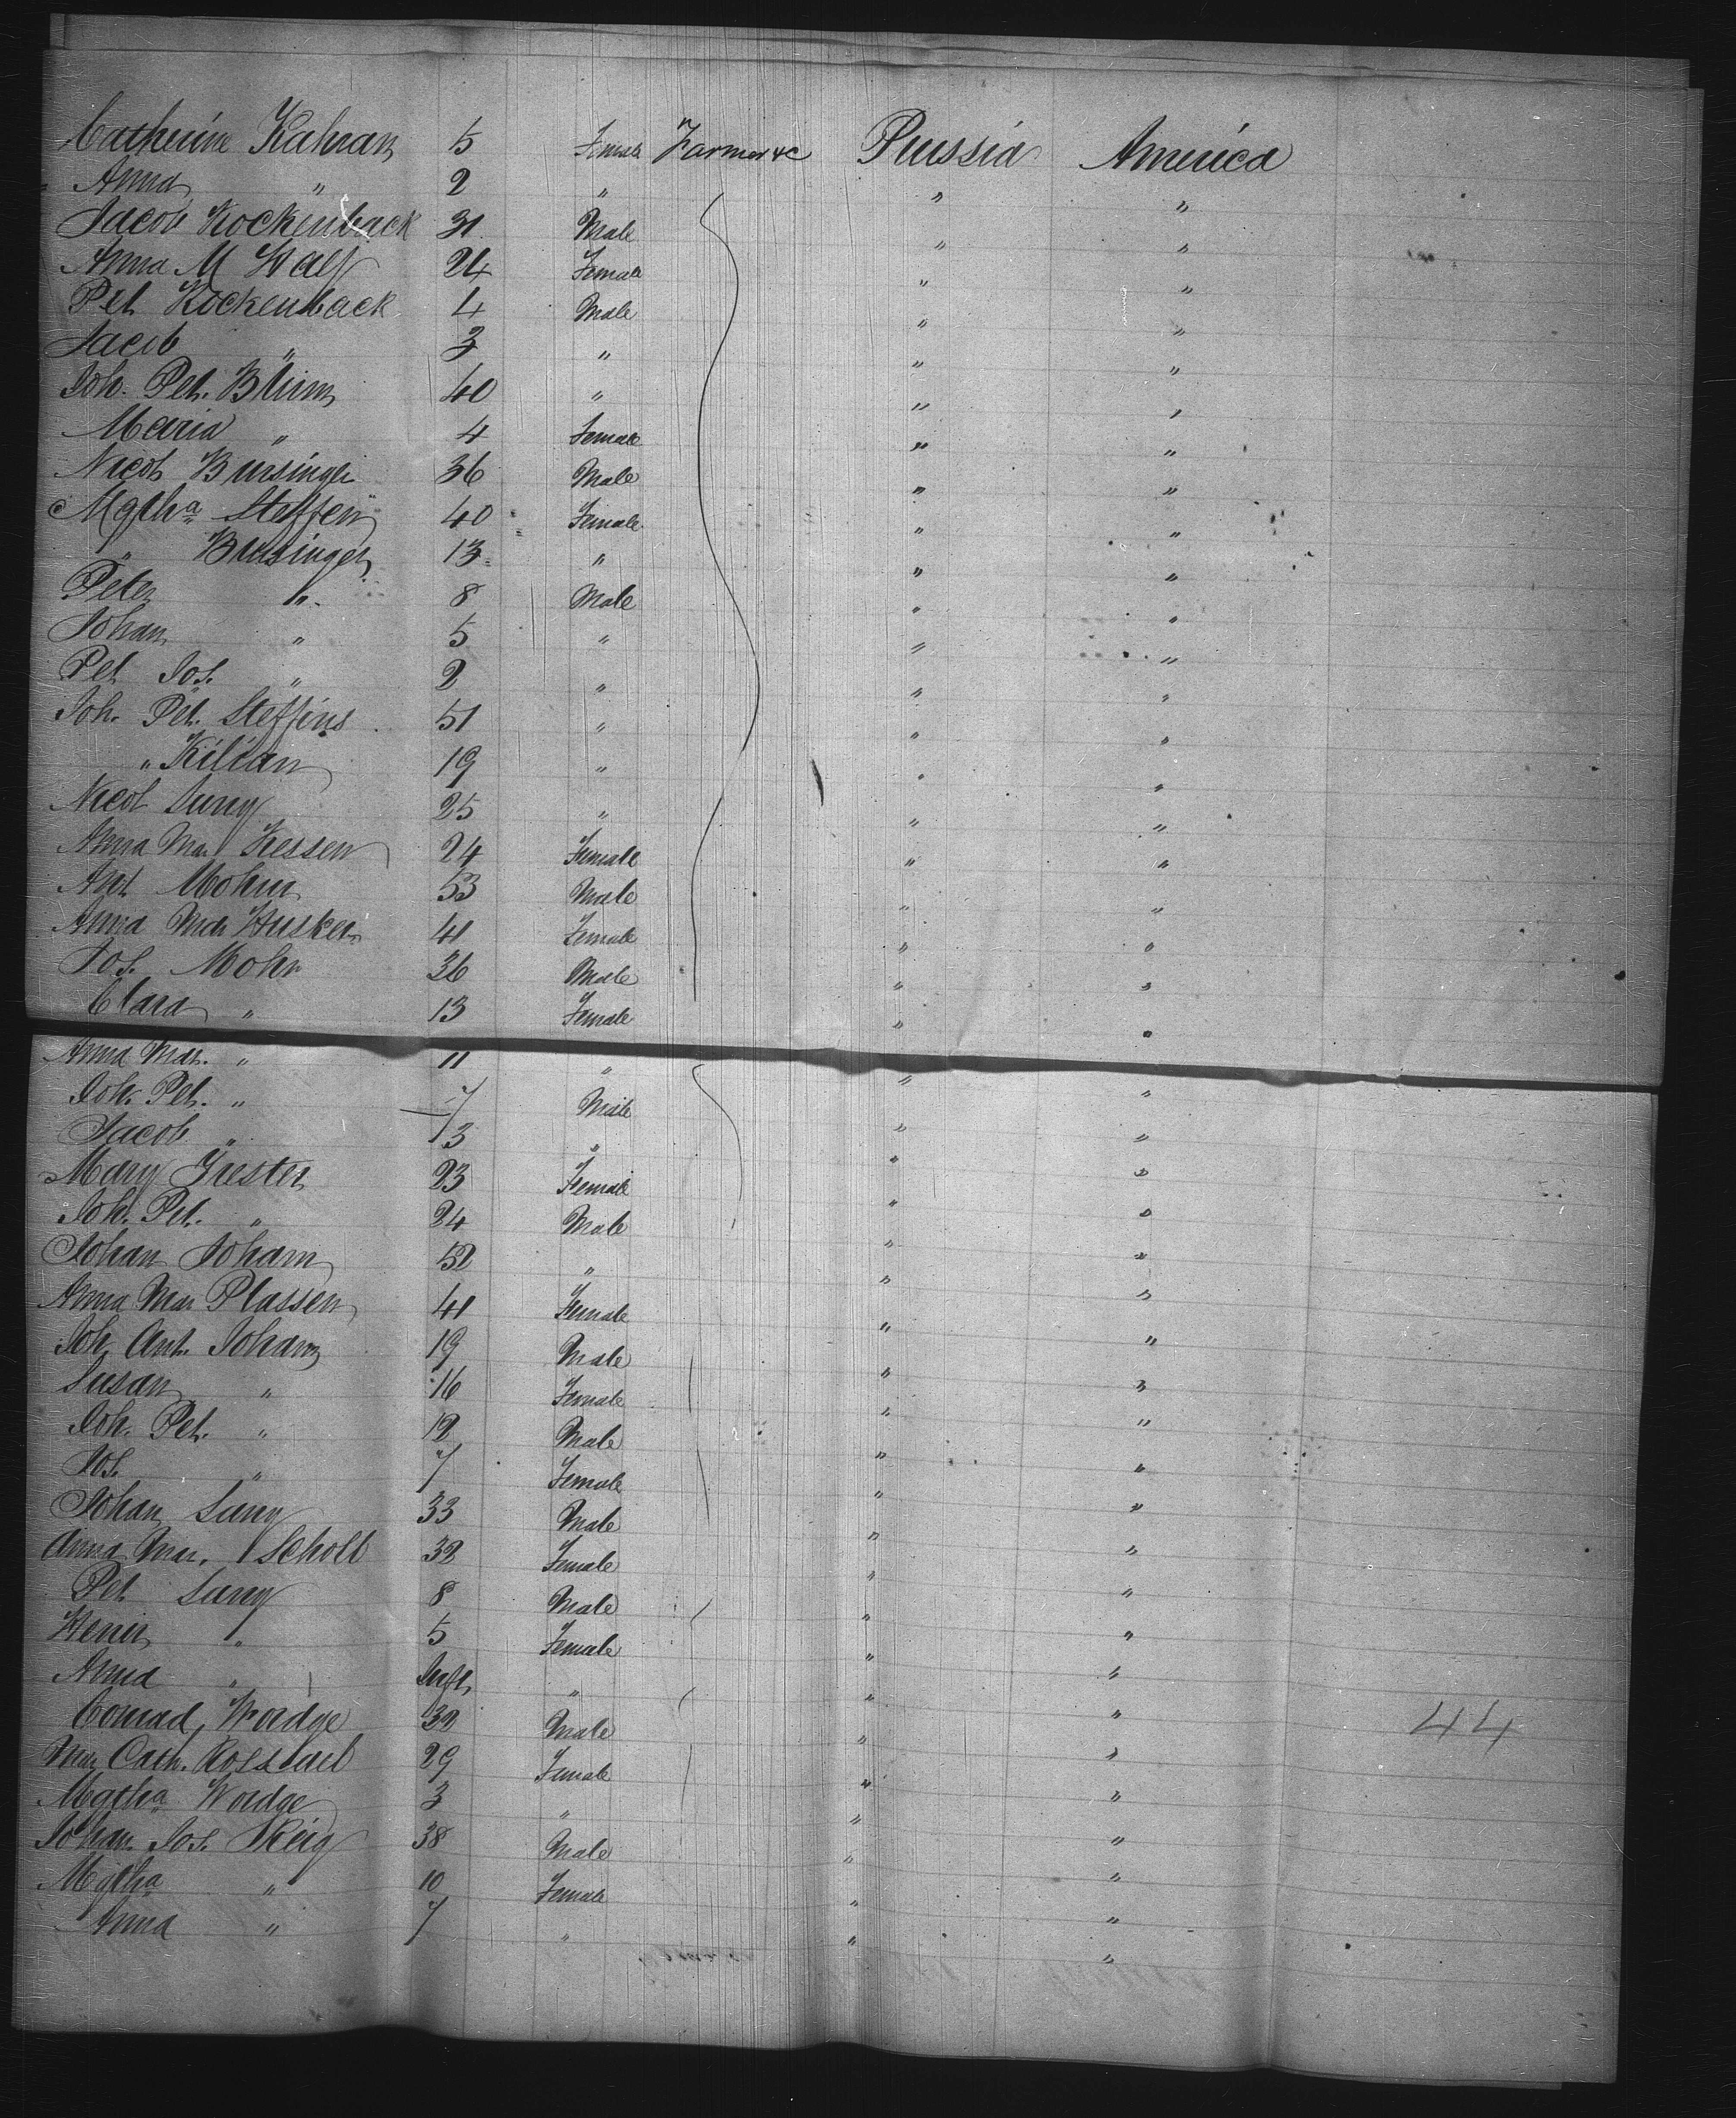 Catherine Kahran 5 Female Farmer &c Prussia America
Anna " 2 " " "
Jacob Kockenback 31 Male " "
Anna M Walf 24 Female " "
Pet Kockenback 4 Male " "
Jacob " 3 " " "
Joh. Pet. Blum 40 " " "
Maria " 4 Female " "
Nicol Bursinger 36 Male " "
Mgtha Steffen 40 Female " "
" Bursinger 13 " " "
Peter " 8 Male " "
Johan " 5 " " "
Pet Jos. " 2 " " "
Joh. Pet. Steffins 51 " " "
" Kilian 19 " " "
Nicol Jung 25 " " "
Anna Mar Hessen 24 Female " "
Ant Mohm 53 Male " "
Anna Mar Husken 41 Female " "
Jos. Mohr 36 Male " "
Clara " 13 Female " "
Anna Mar. " 11 " " "
Joh. Pet. " 7 Male " "
Jacob " 3 " " "
Mary Grester 23 Female " "
Joh. Pet. " 24 Male " "
Johan Joham 52 " " "
Anna Mar Plassen 41 Female " "
Joh Ant. Joham 19 Male " "
Susan " 16 Female " "
Joh. Pet. " 12 Male " "
Jos. " 7 Female " "
Johan Jung 33 Male " "
Anna Mar. Scholl 32 Female " "
Pet Jung 8 Male " "
Henr " 5 Female " "
Anna " Inft " " "
Conrad Wordge 32 Male " " 44
Mar Cath. 29 Female " "
Mgtha Wordge 3 " " "
Johan Jos. Reig 38 Male " "
Mgtha " 10 Female " "
Anna " 7 " " "